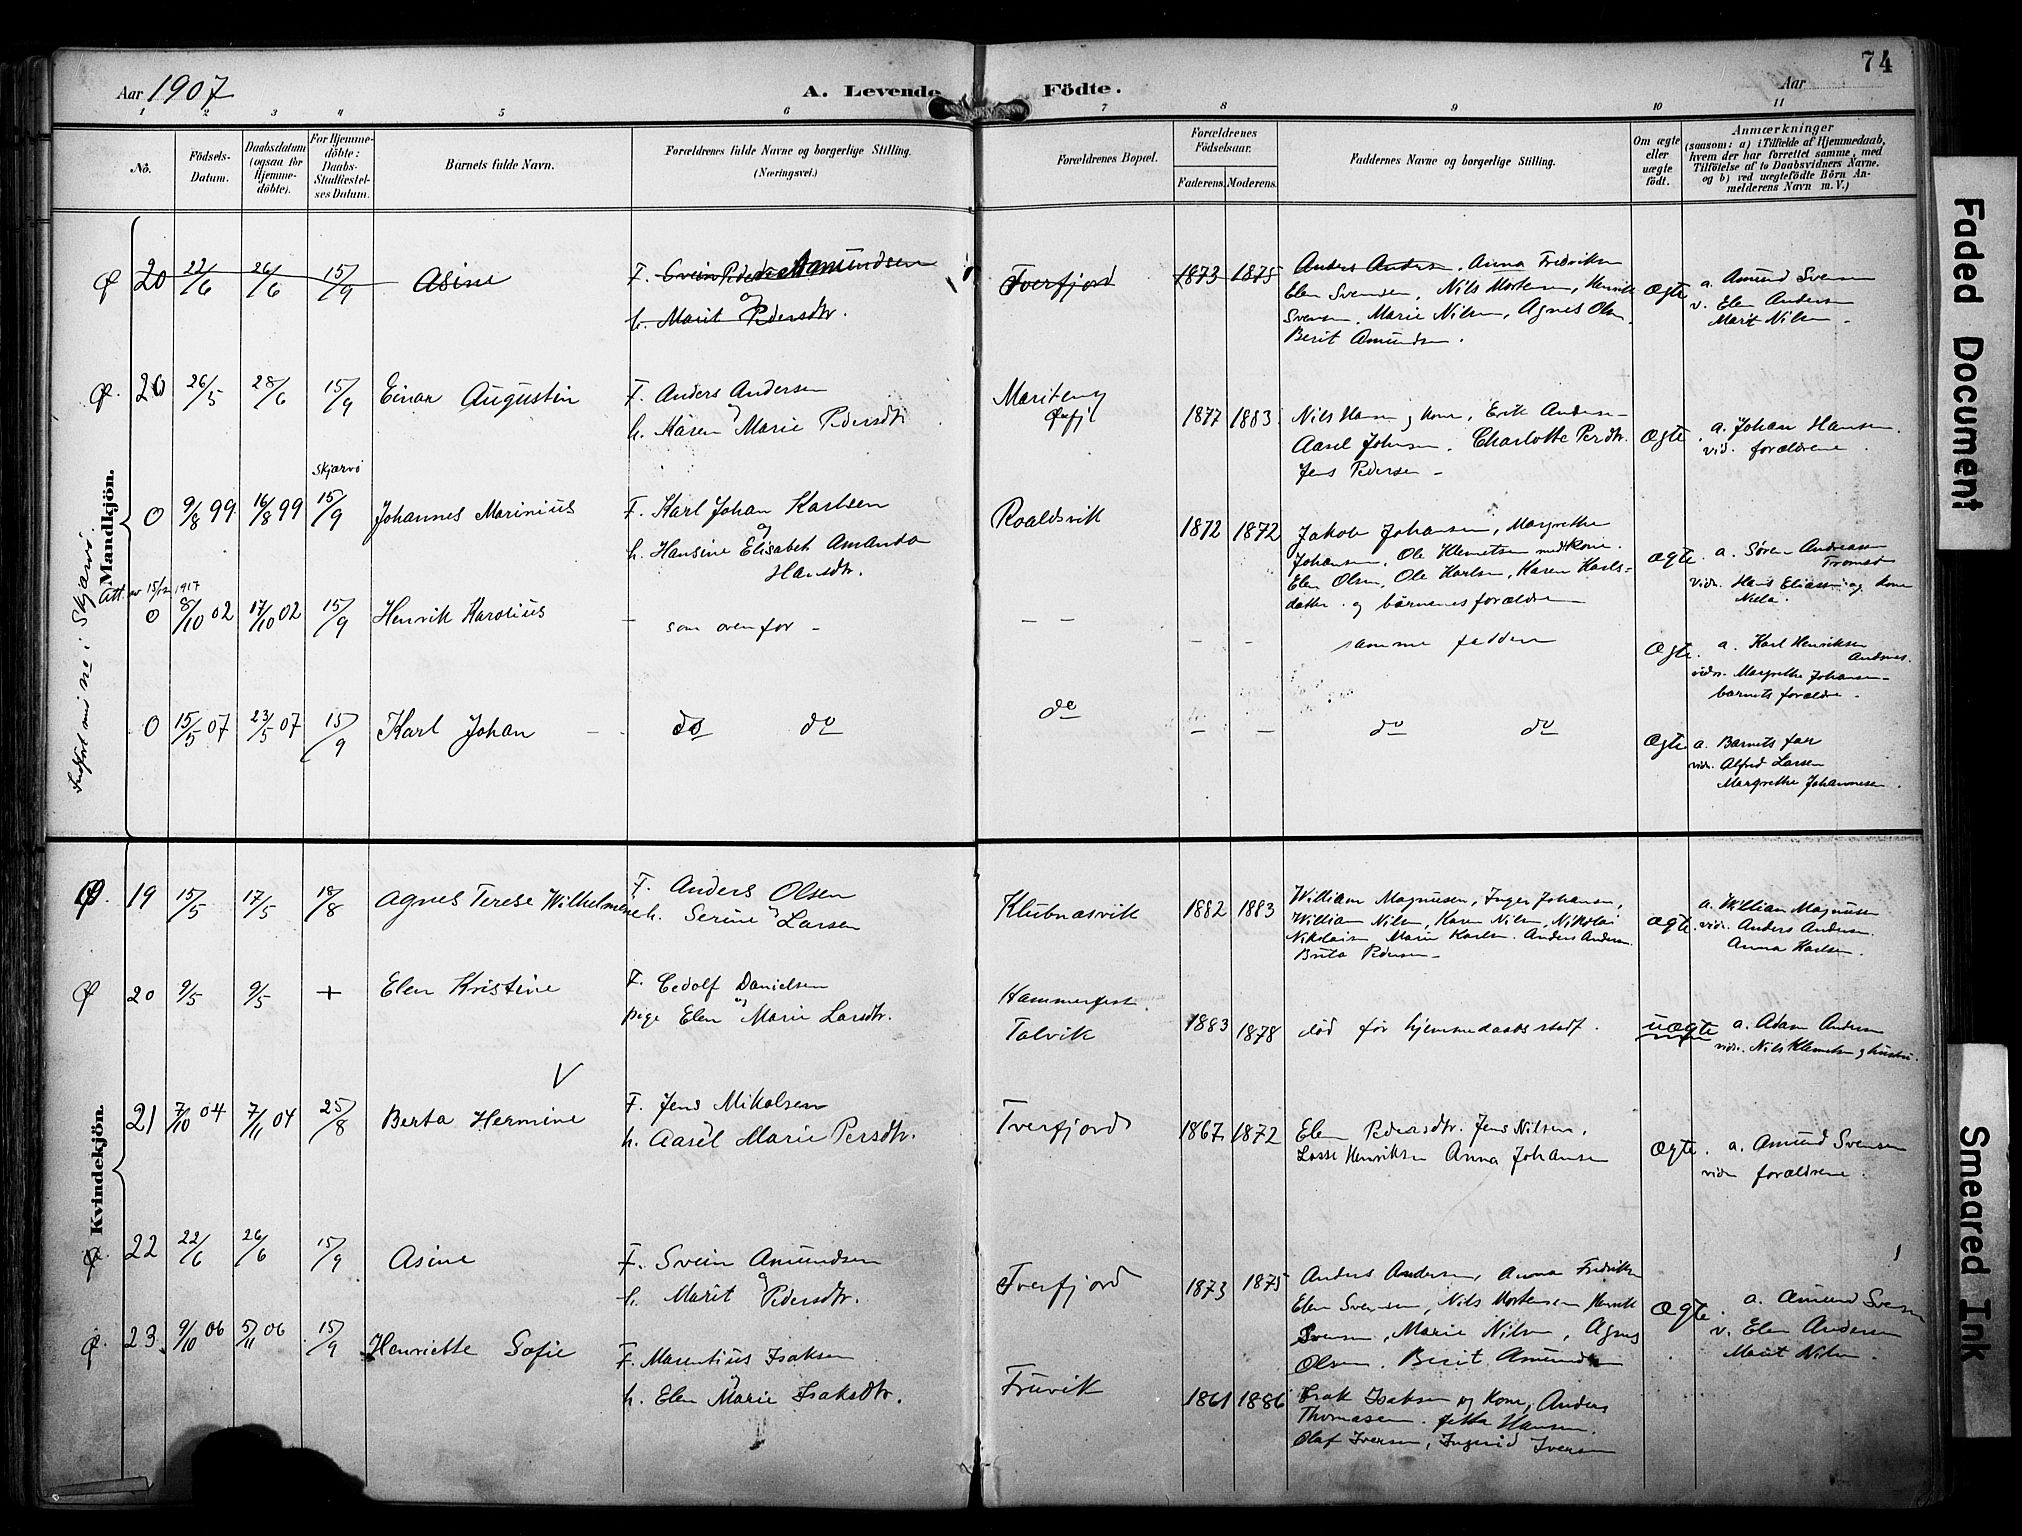 74
Aar 1907
A. Levende Födte.
Aar
1 2 3 4 5 6 7 8 9 10 11
No.
Födsels-Datum.
Daabsdatum (ogsaa for Hjemme-döbte).
For Hjemme-döbte: Daabs-Stadfæstel-ses Datum.
Barnets fulde Navn.
Forældrenes fulde Navne og borgerlige Stilling.
(Næringsvei.)
Forældrenes Bopæl.
Forældrenes Födselsaar.
Faderens. Moderens.
Faddernes Navne og borgerlige Stilling.
Om ægte eller uægte födt.
Anmærkninger
(saasom: a) i Tilfælde af Hjemmedaab, hvem der har forrettet samme, med Tilföielse af to Daabsvidners Navne. og b) ved uægtefödte Börn An-melderens Navn m. V.)
Mandkjön.
Indført med no i Skjærvø
20 22/6 26/6 15/9 Asine
F. Svein Pedersen Amundsen
og
h. Marit Pedersdtr.
Tverfjord
1873 1875
Anders Andersen, Anna Fredriksen
Elen Svensen, Nils Mortensen, Henrik
Svensen, Marie Nilsen, Agnes Olsen,
Berit Amundsen.
Ægte
a. Amund Svensen
v. Elen Andersen
Marit Nilsen.
20 26/5 28/6 15/9 Einar Augustin
F. Anders Andersen
og
h. Karen Marie Pedersdtr
1877 1883
Nils Hansen og kone, Erik Andersen
Aasel Johnsen. Charlotte Persdtr.
Jens Pedersen
Ægte.
a. Johan Hansen.
vid. forældrene.
Skjærvø
0 9/8 99 16/8 99 15/9 Johannes Marinius
F. Karl Johan Karlsen
og
h. Hansine Elisabet Amanda
Hansdtr.
Roaldsvik
1872 1872
Jakob Johansen, Margrethe
Johansen, Ole Klemetsen med kone.
Elen Olsen, Ole Karlsen, Karen Karls-
datter og børnenes forældre
Ægte.
a. Søren Andreasen
Tromsø
vidn. Hans Eliassen og kone
Att. av 15/12 1917
0 8/10 02 17/10 02 15/9 Henrik Karolius
som ovenfor
samme faddere
Ægte.
a. Karl Henriksen
Andsnes.
vidn. Margrethe Johansen
barnets forældre.
0 15/5 07 23/5 07 15/9 Karl Johan
do do
do
do do
Ægte
a. Barnets far
vidn. Alfred Larsen
Margrethe Johannesen.
Kvindekjön.
19 15/5 17/5 18/8 Agnes Terese Wilhelmine
F. Anders Olsen
og
h. Serine Larsen
Klubnæsvik
1882 1883
William Magnusen, Inger Johansen,
William Nilsen, Karen Nilsen, Nikolai
Nikolaisen Marie Karlsen. Anders Andersen.
Brita Pedersen
Ægte.
a. William Magnusen
vidn. Anders Andersen.
Anna Karlsen.
20 9/5 9/5 + Elen Kristine
F. Cedolf Danielsen
og
pige Elen Marie Larsdtr.
Hammerfest
Talvik
1883 1878
død før hjemmedaabs stadf.
uægte
a. Adam Andersen
vidn. Nils Klemetsen og hustru.
V
21 7/10 04 7/11 04 25/8 Berta Hermine
F. Jens Mikalsen
h. Aasel Marie Persdtr.
Tverfjord
1867 1872
Elen Pedersdtr. Jens Nilsen,
Lasse Henriksen Anna Johansen
Ægte.
a. Amund Svensen
vidn forældrene.
22 22/6 26/6 15/9 Asine
F. Svein Amundsen
og
h. Marit Pedersdtr.
Tverfjord
1873 1875
Anders Andersen, Anna Fredriksen
Elen Svensen, Nils Mortensen Henrik
Svensen, Marie Nilsen, Agnes
Olsen. Berit Amundsen
Ægte.
a. Amund Svensen
v. Elen Andersen
Marit Nilsen.
23 9/10 06 5/11 06 15/9 Henriette Sofie
F. Marentius Isaksen
og
h. Elen Marie Isaksdtr.
Fruvik
1861 1886
Isak Isaksen og Kone, Anders
Thomasen. Hansen.
Olaf Iversen, Ingerid Iversen
Faded Document
Smeared Ink